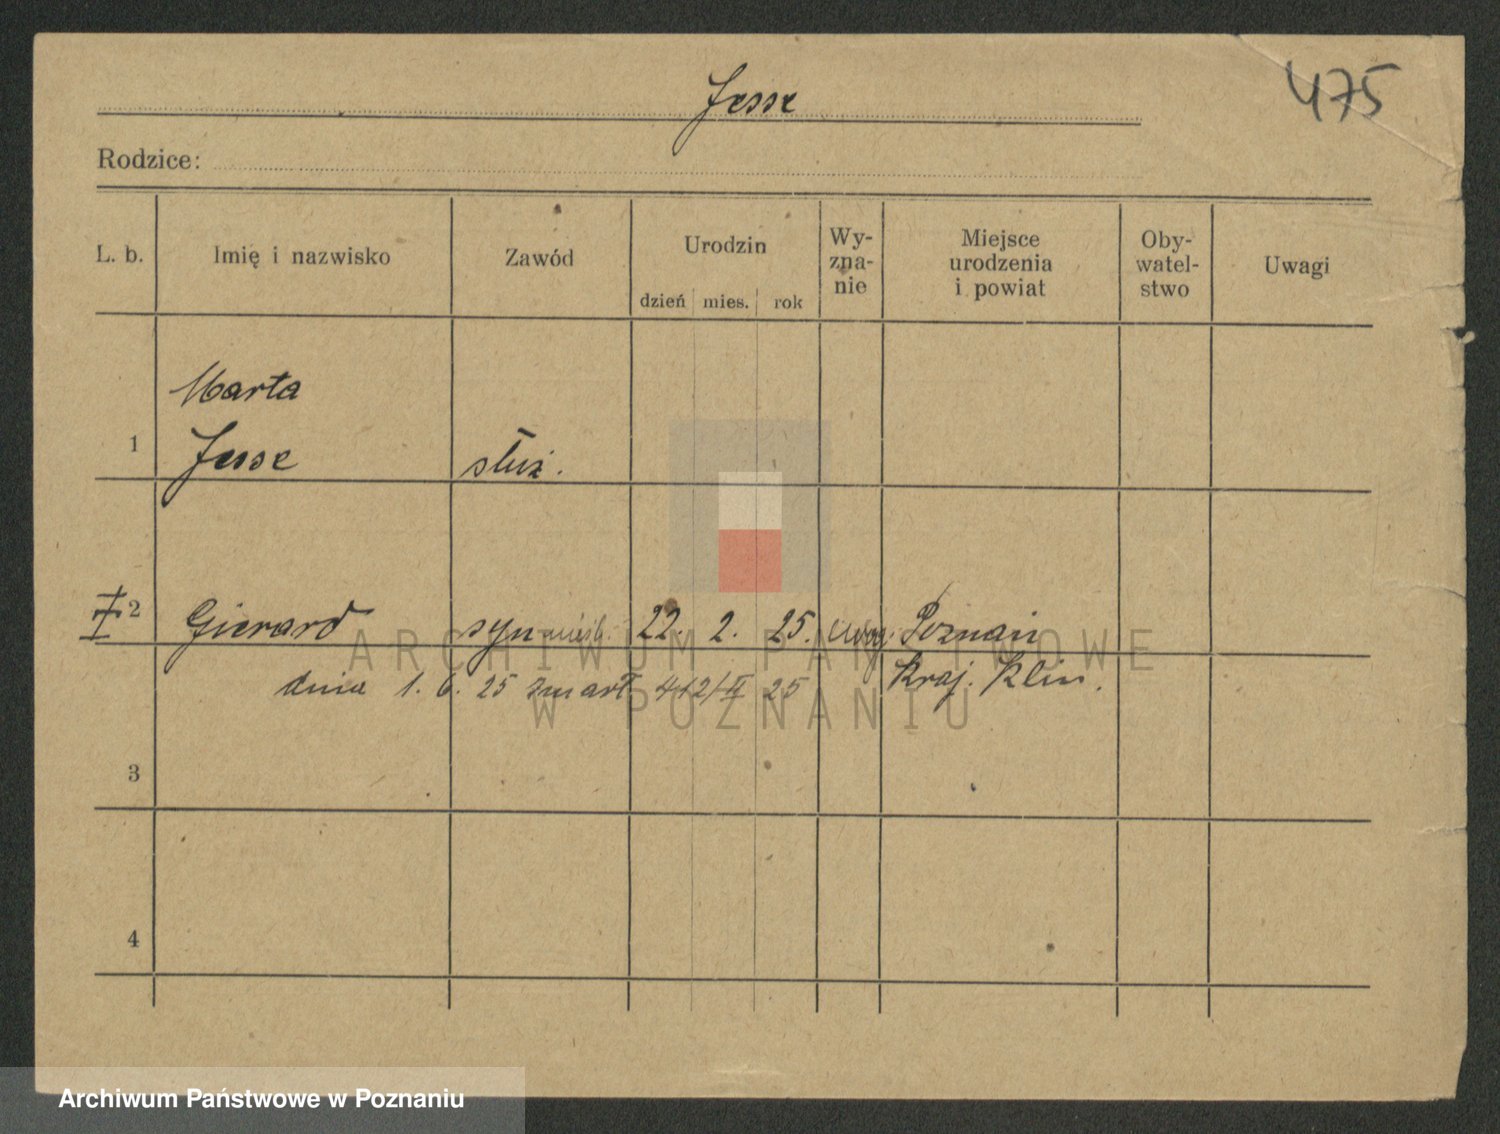 Jesse
475
Rodzice:
L. b.
Imię i nazwisko
Zawód
Urodzin
dzień mies. rok
Wy-
zna-
nie
Miejsce
urodzenia
i powiat
Oby-
watel-
stwo
Uwagi
Marta
1 Jesse służ.
2 Gierard syn 22. 2. 25. Poznań
dnia 1. 6. 25 zmarł 412/II 25 Kraj. Klin.
3
4
ARCHIWUM PAŃSTWOWE
W POZNANIU
Archiwum Państwowe w Poznaniu